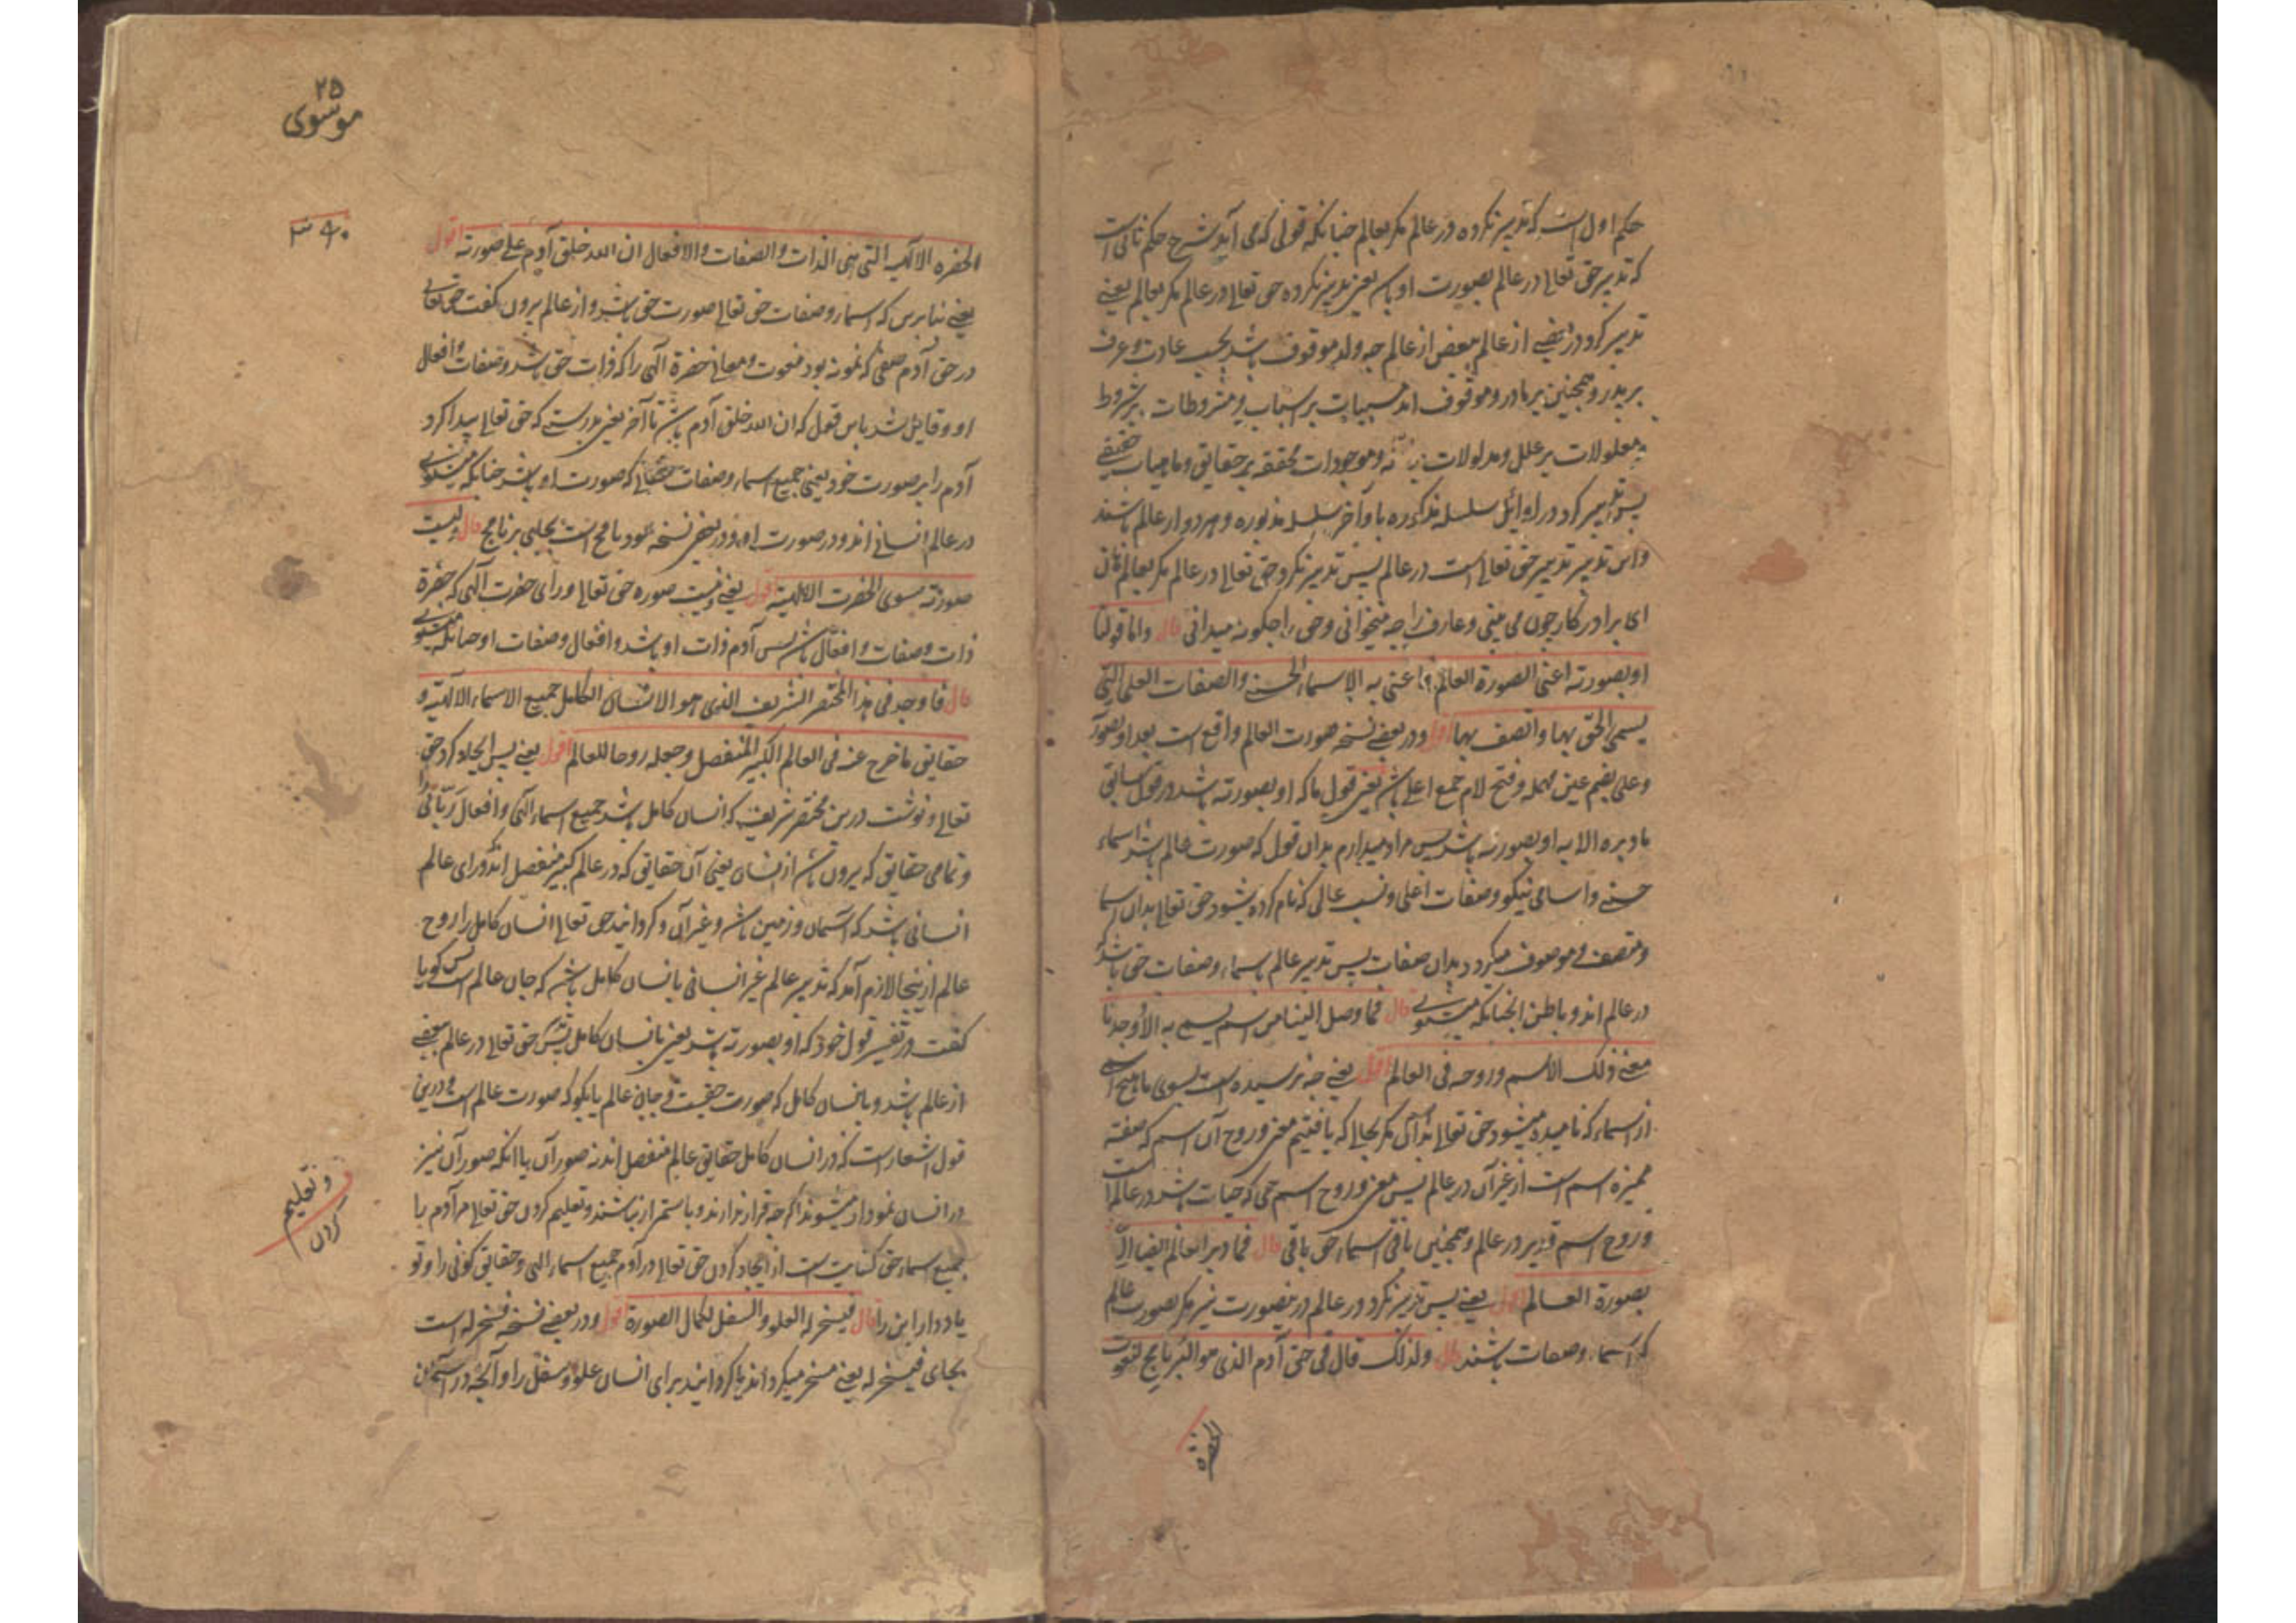 حکم اول است که تدبیر نکرده در عالم مکر بعالم چنانکه قولی که می آید شرح حکم ثانی است
که تدبیر حق تعالی در عالم بصورت او باشد یعنی تدبیر نکرده حق تعالی در عالم مکر بعالم یعنی
تدبیر کرد در بعضی از عالم ببعض از عالم چه ولد موقوف باشد بحسب عادت و عرف
بر پدر و همچنین بر مادر و موقوف اند مسببات بر اسباب و مشروطات بر شروط
و معلولات بر علل و مدلولات و موجودات محققه بر حقایق و ماهیات حقیقی
پس تدبیر کرد در اوایل سلسله مذکوره با واخر سلسله مذکوره و هر دو از عالم باشند
و این تدبیر تدبیر حق تعالی است در عالم پس تدبیر نکرد حق تعالی در عالم مکر بعالم
ای برادر در کار چون می بینی و عارف را چه میخوانی و حق را چکونه میدانی قال واما قولنا
او بصورته اعنی الصورة العالم اعنی به الاسماء الحسنی والصفات العلی التی
یسمی الحق بها واتصف بها اقول و در بعضی نسخه صورت العالم واقع است بعد او بصورته
وعلی بضم عین مهمله و فتح لام جمع اعلی باشد یعنی قول ما که او بصورته باشد در قول سابق
ما دبره الا به او بصورته باشد پس مراد میدارم بدان قول که صورت عالم باشد اسماء
حسنی و اسامی نیکو و صفات اعلی و نسب عالی که نام کرده میشود حق تعالی بدان اسما
و متصف و موصوف میکردد بدان صفات پس تدبیر عالم باسماء و صفات حق باشد که
در عالم اند و باطن چنانکه میشنوی قال فما وصل الینا من اسم یسمی به الا وجدنا
معنی ذلک الاسم وروحه فی العالم اقول یعنی چه نرسیده است بسوی ما هیچ اسمی
از اسماء که نامیده میشود حق تعالی بدان مکر بحالی که یافتیم معنی و روح آن اسم که صفته
ممیزه اسم است از غیر آن در عالم پس معنی و روح اسم حی که حیات باشد در عالم است
و روح اسم قدیر در عالم و همچنین باقی اسماء حق باقی قال فما دبر العالم ایضا الا
بصورة العالم اقول یعنی پس تدبیر نکرد در عالم درینصورت نیز مکر بصورت عالم
که اسماء و صفات باشند قال ولذلک قال فی حق آدم الذی هو البرنامج لنعوت
الحضرة
۲۵
موسوی
الحضره الالهیه التی هی الذات والصفات والافعال ان الله خلق آدم علی صورته اقول
یعنی بنا برین که اسماء و صفات حق تعالی صورت حق باشد و از عالم بیرون کفت حق تعالی
در حق آدم صفی که نمونه بود منعوت و معانی حضرة الهی را که ذات حق باشد و صفات و افعال
او و قایل شد باین قول که ان الله خلق آدم باشد تا آخر یعنی بدرستی که حق تعالی پیدا کرد
آدم را بر صورت خود یعنی جمیع اسماء و صفات حقانی که صورت او باشد چنانکه میشنوی
در عالم انسانی اند و در صورت او و در بعضی نسخه برنامج قال ولیست
صورته سوی الحضرت الالهیة اقول یعنی و نیست صوره حق تعالی ورای حضرت الهی که حضرة
ذات و صفات و افعال باشد پس آدم ذات او باشد و افعال و صفات او چنانکه میشنوی
قال فاوجد فی هذا المختصر الشریف الذی هو الانسان الکامل جمیع الاسماء الالهیة و
حقایق ما خرج عنه فی العالم الکبیر المنفصل وجعله روحا للعالم اقول یعنی پس ایجاد کرد حق
تعالی و نوشت درین مختصر شریف که انسان کامل باشد جمیع اسماء الهی و افعال ربانی را
و تمامی حقایق که بیرون باشد از انسان یعنی آن حقایق که در عالم کبیر منفصل اند ورای عالم
انسانی باشد که آسمان و زمین باشد و غیر آن و کردانید حق تعالی انسان کامل را روح
عالم ازینجا لازم آمد که تدبیر عالم غیر انسانی بانسان کامل باشد که جان عالم است پس کویا
کفت در تفسیر قول خود که او بصورته باشد یعنی بانسان کامل حق تعالی در عالم ببعضی
از عالم باشد و بانسان کامل که صورت حقیقت و جان عالم یا بکو که صورت عالم است و درین
قول اشعار است که در انسان کامل حقایق عالم منفصل اند نه صور آن با آنکه صور آن نیز
در انسان نمودار میشوند اکر چه قرار ندارند و باستمرار نباشند و تعلیم کردن حق تعالی مر آدم را
و تعلیم
کردن
جمیع اسماء حق کنایت است از ایجاد کردن حق تعالی در آدم جمیع اسماء الهی و حقایق کونی را و تو
یاد دار این را قال فیسخر له العلو والسفل لکمال الصورة اقول و در بعضی نسخه فسخر له است
بجای فیسخر له یعنی مسخر میکرداند یا کردانید برای انسان علو و سفل را و آنچه در آسمان